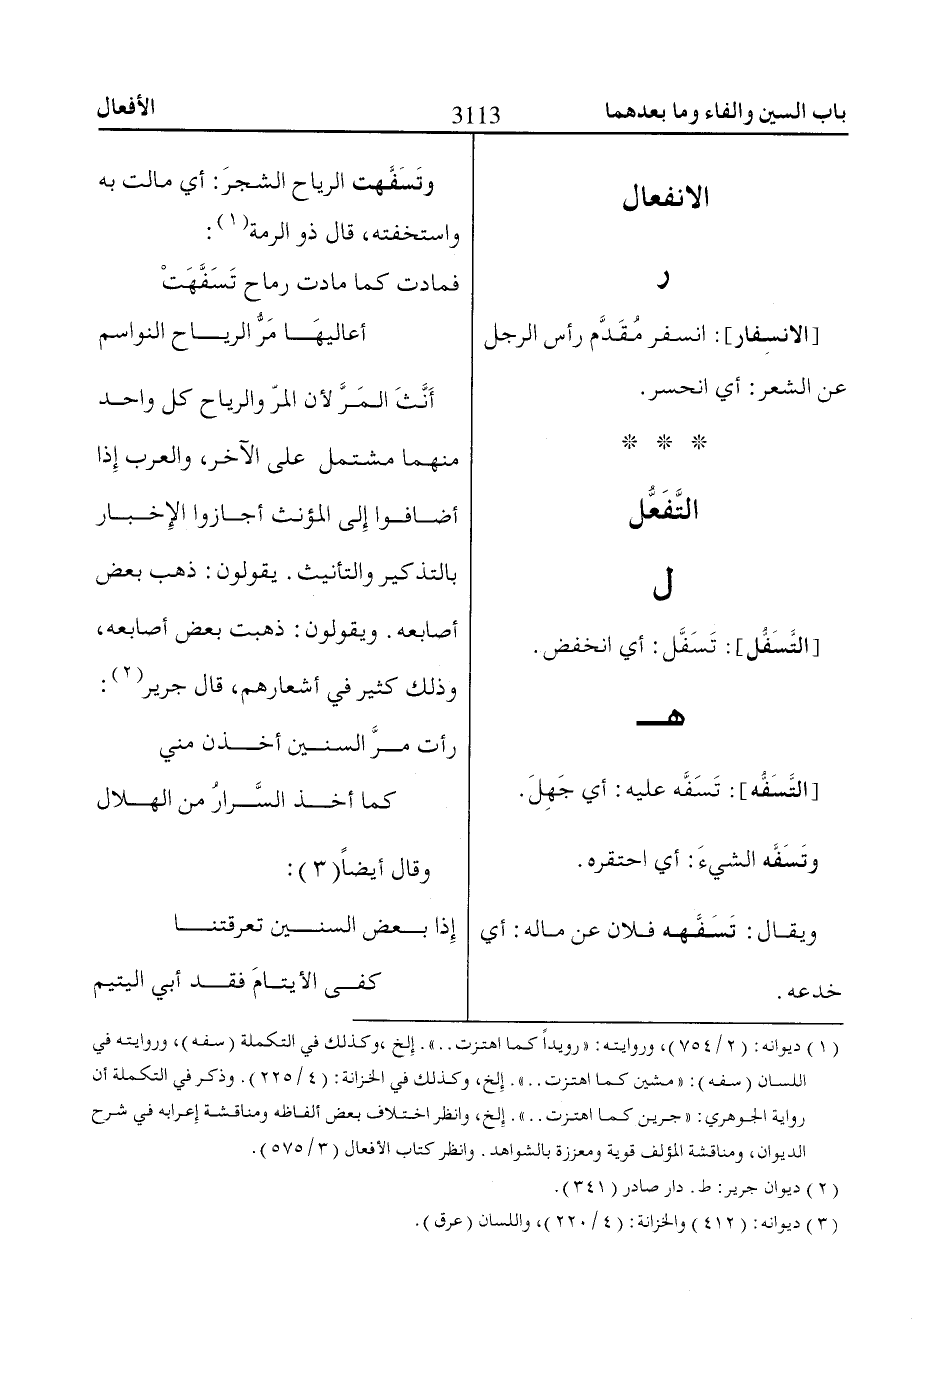 باب السين والفاء وما بعدهما 3113 الأفعال
الانفعال
ر
[الانسفار]: انسفر مُقَدَّم رأس الرجل
عن الشعر: أي انحسر.
* * *
التَّفَعُّل
ل
[التَّسَفُّل]: تَسَفَّل: أي انخفض.
هـ
[التَّسَفُّه]: تَسَفَّه عليه: أي جَهِلَ.
وتَسَفَّه الشيءَ: أي احتقره.
ويقال: تَسَفَّهه فلان عن ماله: أي
خدعه.
وتَسَفَّهت الرياح الشجرَ: أي مالت به
واستخفته، قال ذو الرمة(١):
فمادت كما مادت رماح تَسَفَّهَتْ
أعاليهَا مَرُّ الرياح النواسم
أنَّثَ المَرَّ لأن المرّ والرياح كل واحد
منهما مشتمل على الآخر، والعرب إذا
أضافوا إلى المؤنث أجازوا الإخبار
بالتذكير والتأنيث. يقولون: ذهب بعض
أصابعه. ويقولون: ذهبت بعض أصابعه،
وذلك كثير في أشعارهم، قال جرير(٢):
رأت مرَّ السنين أخذن مني
كما أخذ السَّرارُ من الهلال
وقال أيضاً(٣):
إذا بعض السنين تعرقتنا
كفى الأيتامَ فقد أبي اليتيم
(١) ديوانه: (٧٥٤/٢)، وروايته: «رويداً كما اهتزت..». إلخ ،وكذلك في التكملة (سفه)، وروايته في
اللسان (سفه): «مشين كما اهتزت..». إلخ، وكذلك في الخزانة: (٢٢٥/٤). وذكر في التكملة أن
رواية الجوهري: «جرين كما اهتزت..». إلخ، وانظر اختلاف بعض ألفاظه ومناقشة إعرابه في شرح
الديوان، ومناقشة المؤلف قوية ومعززة بالشواهد. وانظر كتاب الأفعال (٥٧٥/٣).
(٢) ديوان جرير: ط. دار صادر (٣٤١).
(٣) ديوانه: (٤١٢) والخزانة: (٢٢٠/٤)، واللسان (عرق).